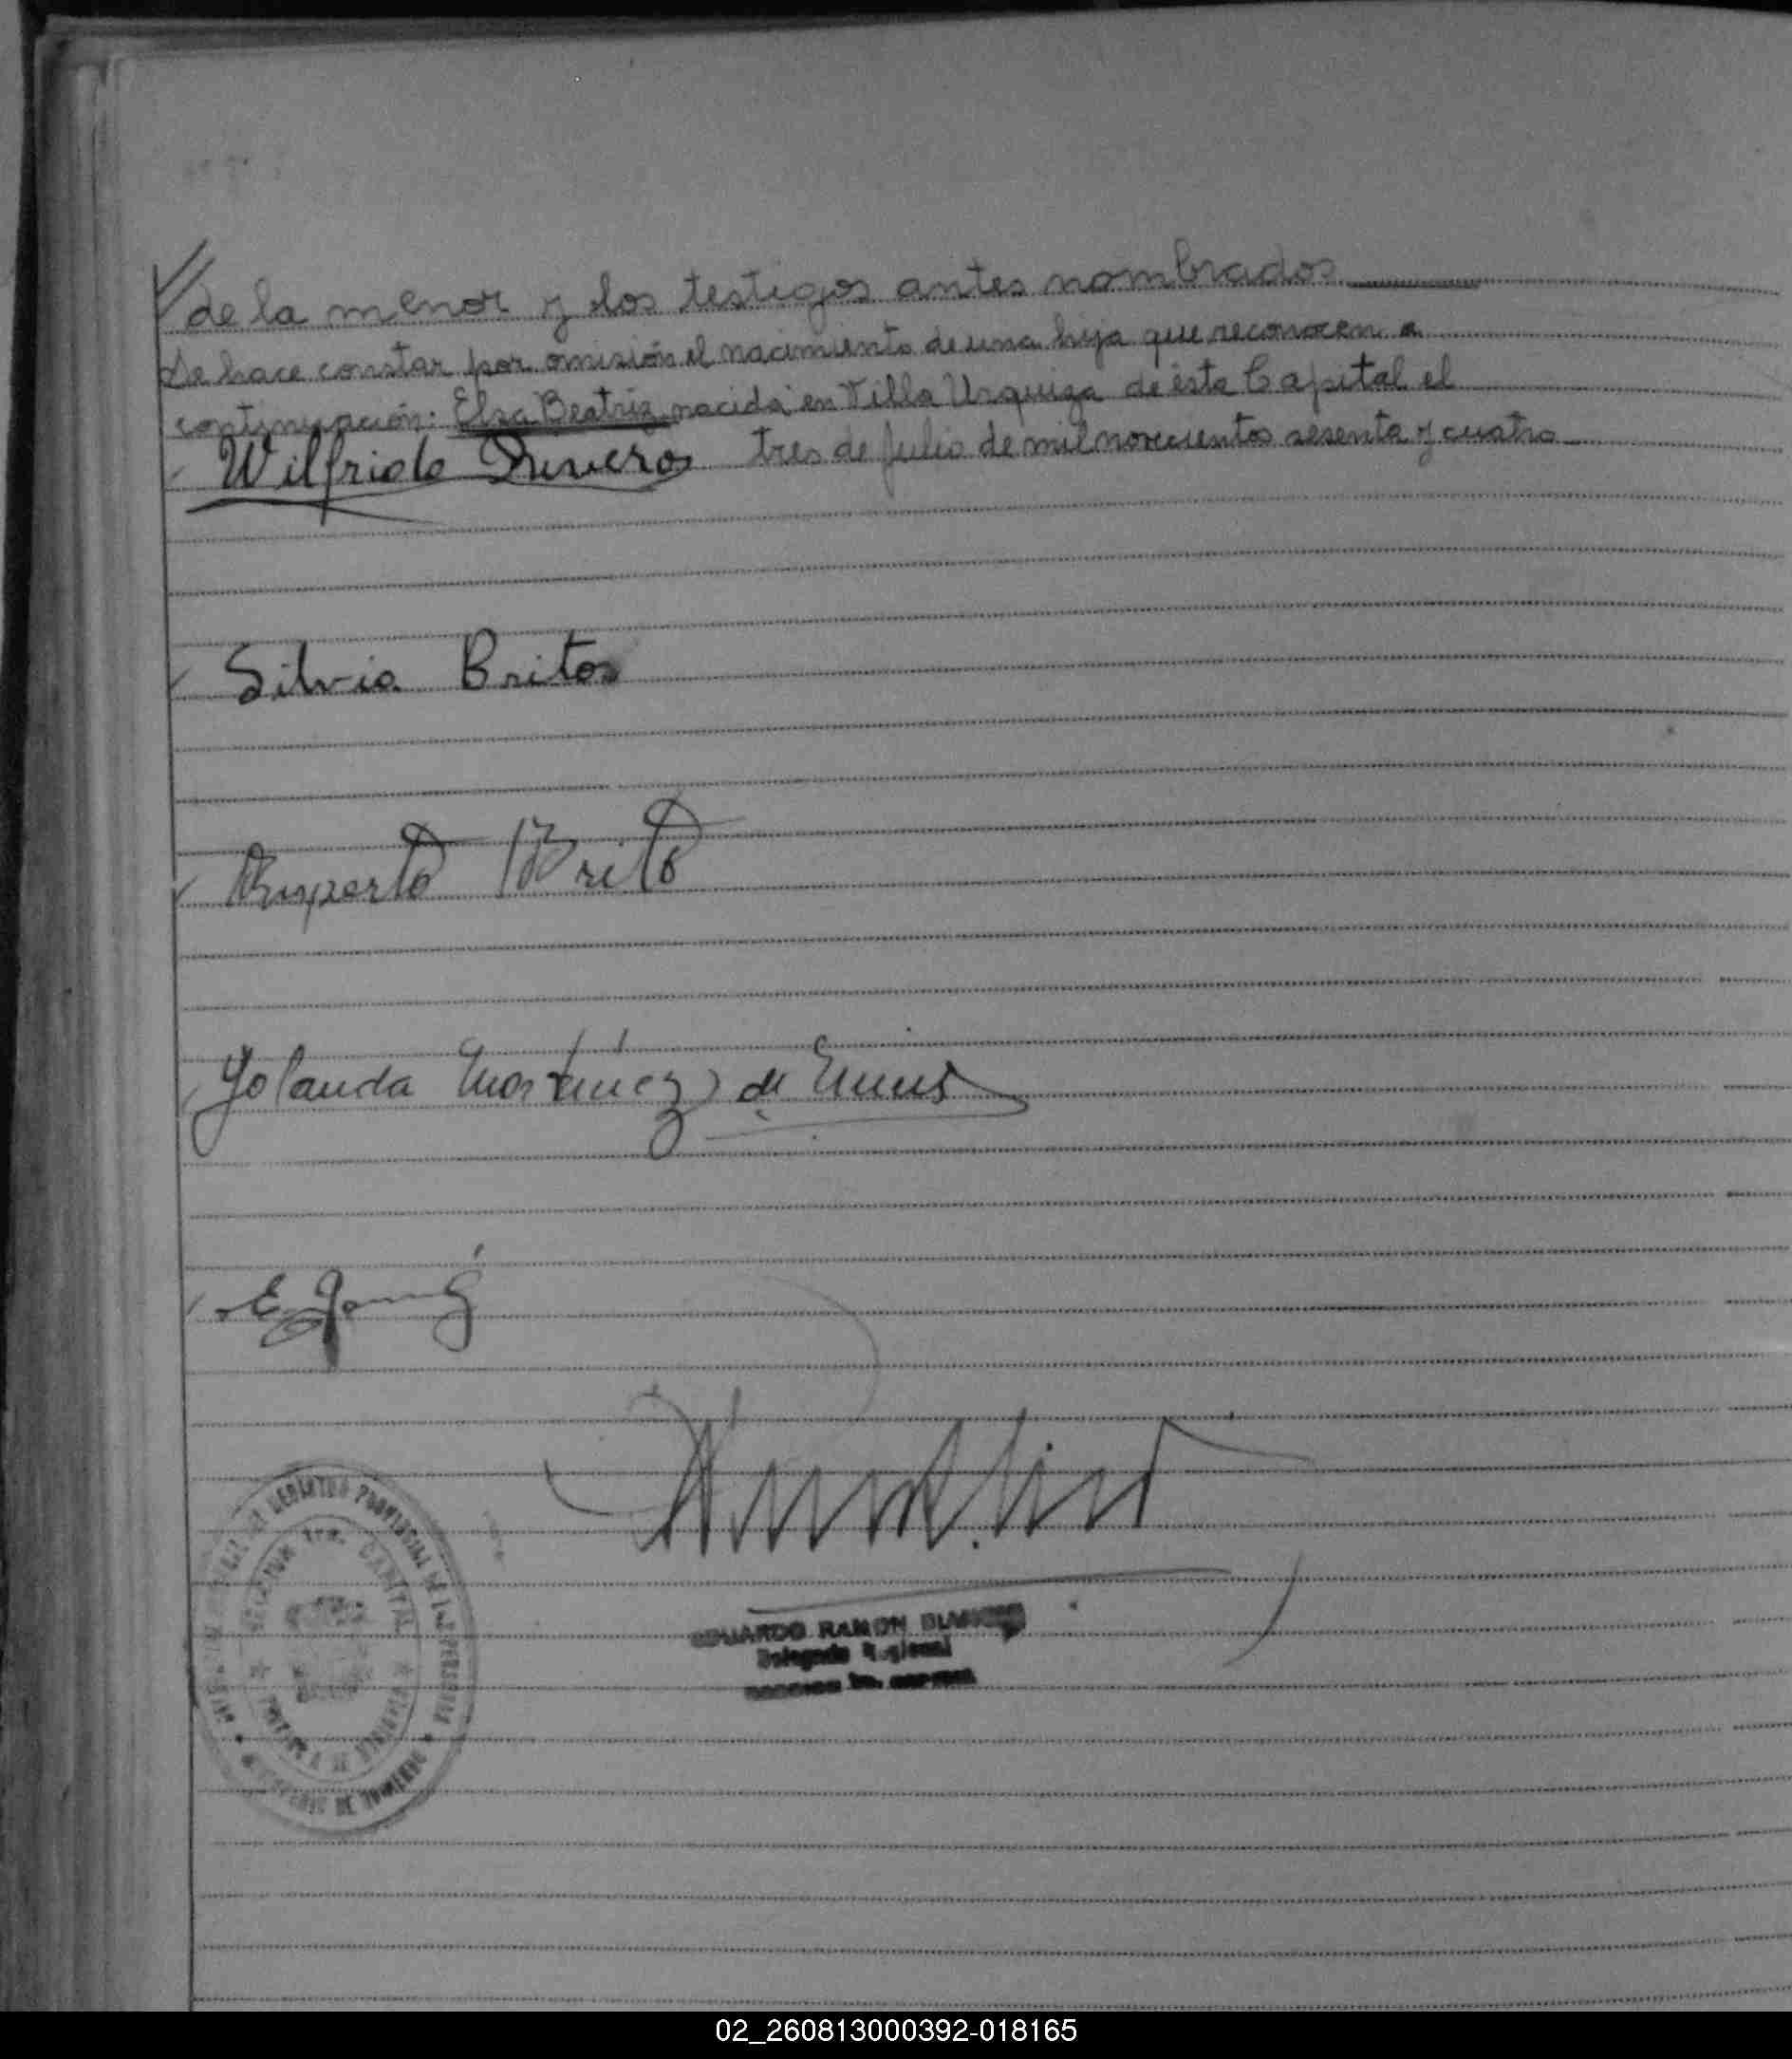 de la menor y los testigos antes nombrados
Se hace constar por omisión el nacimiento de una hija que reconocen a
continuación: Elsa Beatriz nacida en Villa Urquiza de ésta Capital el
tres de Julio de mil novecientos sesenta y cuatro
Wilfrido
Silvia Britos
Ruperto Brito
Yolanda Martinez de
E.
REGISTRO PROVINCIAL DE LAS PERSONAS
CAPITAL
EDUARDO RAMON
Delegado Regional
02_260813000392-018165